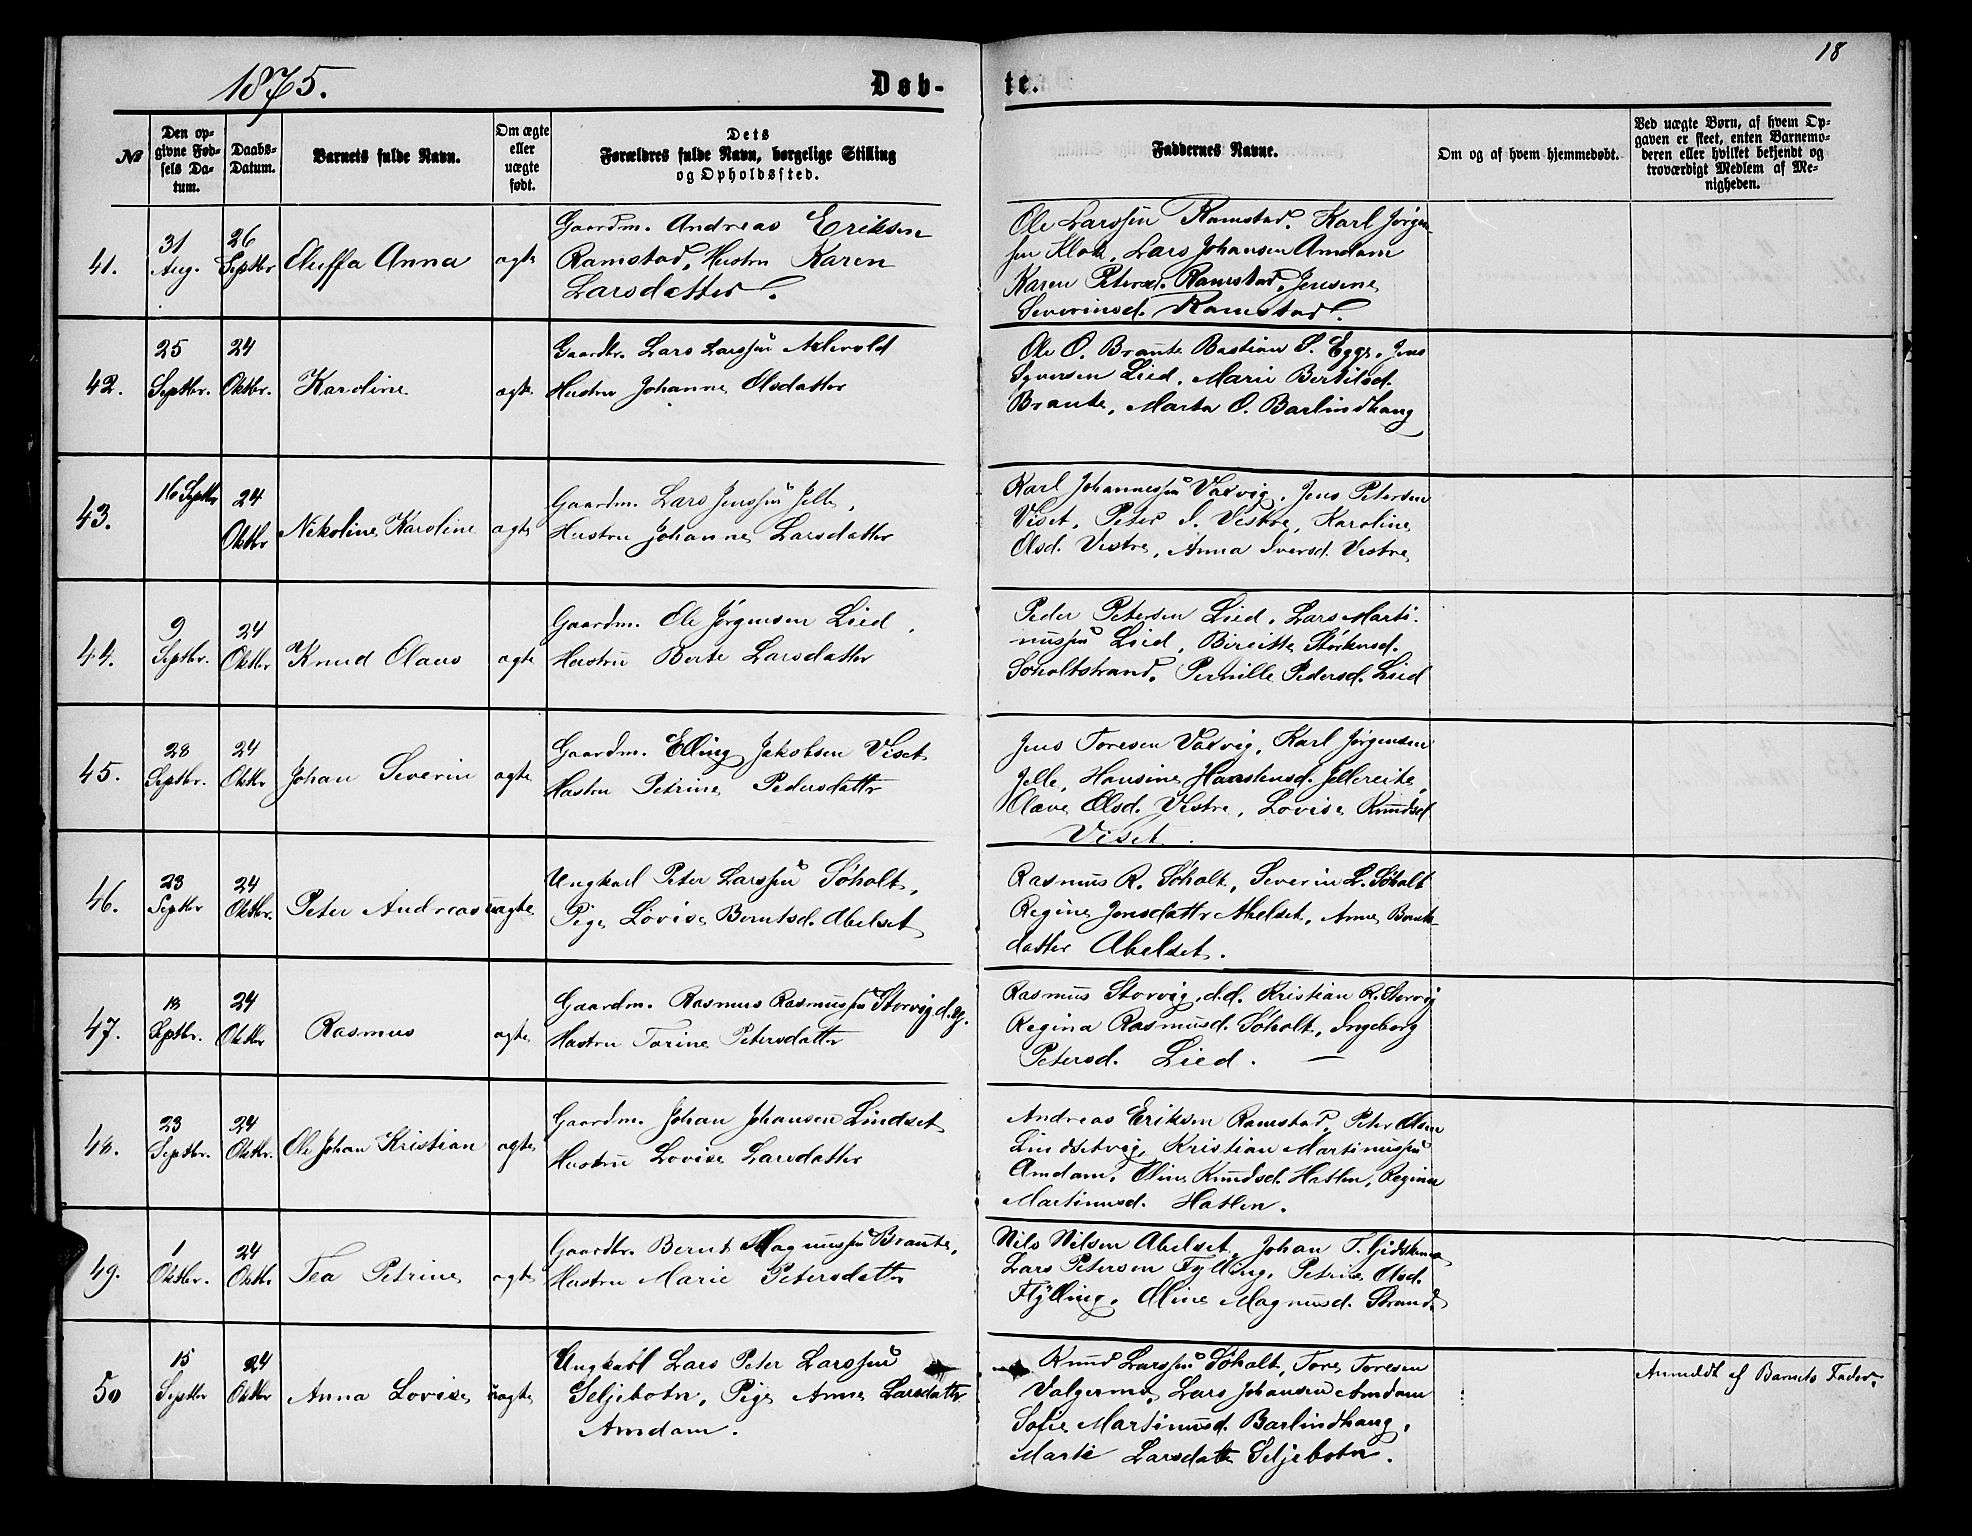 18
1875.
Døb-
te.
№
Den op-
givne Fød-
sels Da-
tum.
Daabs-
Datum.
Barnets fulde Navn.
Om ægte
eller
uægte
født.
Dets
Forældres fulde Navn, borgelige Stilling
og Opholdssted.
Faddernes Navne.
Om og af hvem hjemmedøbt.
Ved uægte Børn, af hvem Op-
gaven er skeet, enten Barnemo-
deren eller hvilket bekjendt og
troværdigt Medlem af Me-
nigheden.
41.
31
Aug.
26
Septbr
Anna
ægte
Gaardm. Andreas Eriksen
Ramstad, Hustru Karen
Larsdatter.
Ole Larssen Ramstad. Karl Jørgen-
sen Klok, Lars Johansen Amdam
Karen Petersd. Ramstad, Jensine
Severinsd. Ramstad.
42.
25
Septbr.
24
Oktbr.
Karoline
ægte
Gaardbr. Lars Larssen
Hustru Johanne Olsdatter
Ole O. Braute Bastian S. Egge, Jens
Syversen Lied, Marie Bertilsd.
Braute, Marta O. Barlindhaug
43.
16 Septbr
24
Oktbr
Nikoline Karoline
ægte
Gaardm. Lars Jenssen Jelle,
Hustru Johanne Larsdatter
Karl Johannessen Vaxvig, Jens Petersen
Viset, Peter I. Vestre, Karoline
Olsd. Vestre, Anna Iversd. Vestre
44.
9
Septbr.
24
Oktbr
Knud Olaus
ægte
Gaardm. Ole Jørgensen Lied,
Hustru Berte Larsdatter
Peder Petersen Lied, Lars Marti-
nussen Lied, Bireitte Storkersd.
Søholtstrand. Pernille Pedersd. Lied
45.
28
Septbr.
24
Oktbr
Johan Severin
ægte
Gaardm. Elling Jakobsen Viset
Hustru Petrine Pedersdattr
Jens Toresen Vaxvig, Karl Jørgensen
Jelle, Hansine Hanstensd. Jellereite,
Olave Olsd. Vestre, Lovise Knudsd
Viset.
46.
23
Septbr
24
Oktbr.
Peter Andreas
uægte
Ungkarl Peter Larssen Søholt,
Pige Lovise Berntsd. Abelset
Rasmus R. Søholt, Severin L. Søholt
Regine Jensdattr Abelset, Anne Bernts-
datter Abelset.
47.
18
Septbr.
24
Oktbr
Rasmus
ægte
Gaardm. Rasmus Rasmussen Storvig d. y.
Hustru Torine Petersdattr
Rasmus Storvig, d.æ. Kristian R. Storvig
Regina Rasmusd. Søholt, Ingeborg
Petersd. Lied. —
48.
23
Septbr.
24
Oktbr.
Ole Johan Kristian
ægte
Gaardm. Johan Johansen Lindset
Hustru Lovise Larsdatter
Andreas Eriksen Ramstad, Peter Olsen
Lindsetvig, Kristian Martinussen
Amdam, Oline Knudsd. Hatlen, Regine
Martinusd. Hatlen.
49.
1
Oktbr.
24
Oktbr
Tea Petrine
ægte
Gaardbr. Bernt Magnussen Braute,
Hustru Marie Petersdattr
Nils Nilsen Abelset, Johan T.
Lars Petersen Fylling, Petrine Olsd.
Fylling, Oline Magnusd. Strand
50
15
Septbr
24
Oktbr
Anna Lovise
uægte
Ungkarl Lars Peter Larssen
Seljebotn, Pige Anne Larsdattr
Amdam.
Knud Larssen Søholt, Tore Toresen
Valgermo, Lars Johansen Amdam
Sofie Martinusd. Barlindhaug,
Marte Larsdatt Seljebotn.
Anmeldt af Barnets Fader.